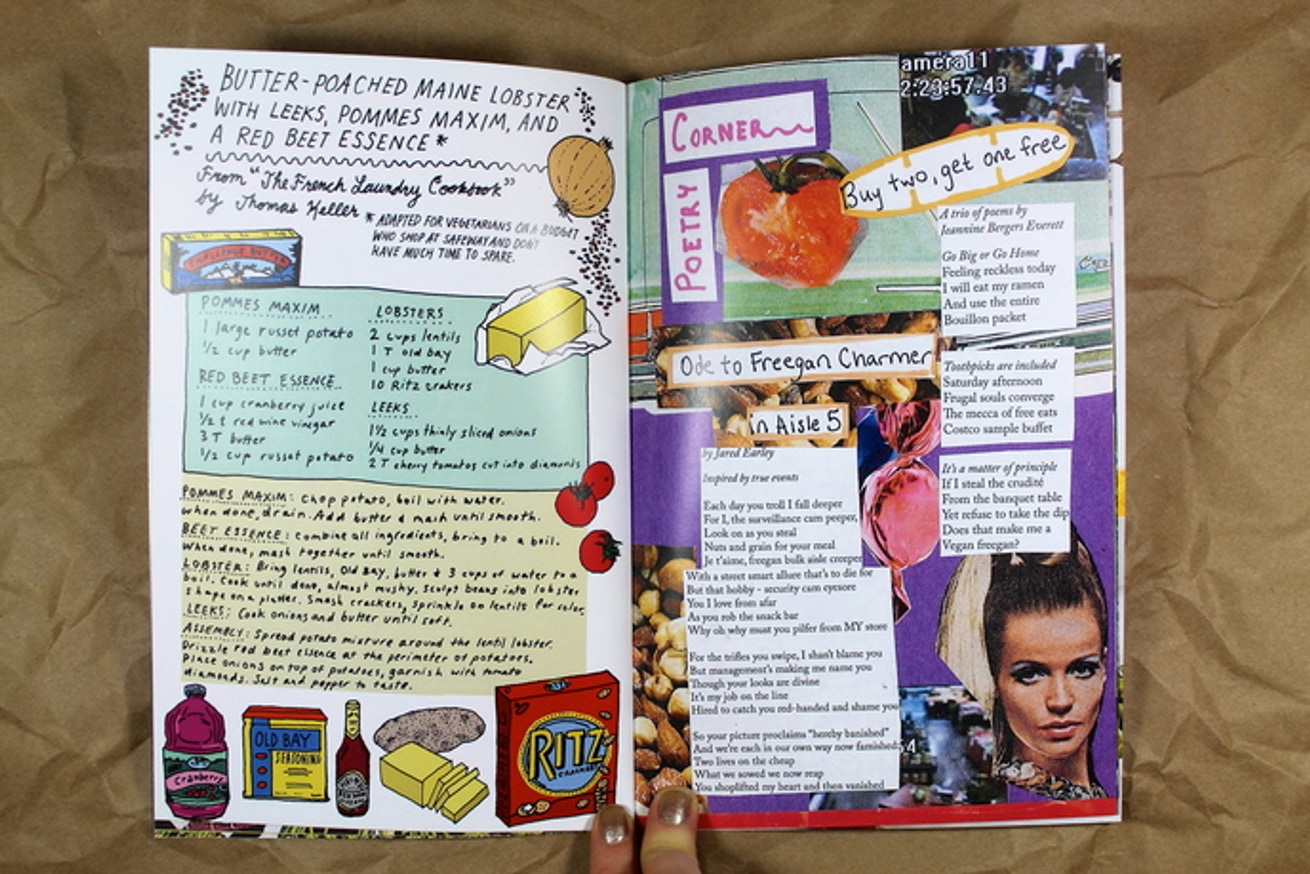 BUTTER-POACHED MAINE LOBSTER
WITH LEEKS, POMMES MAXIM, AND
A RED BEET ESSENCE*
From "The French Laundry Cookbook"
by Thomas Keller
* ADAPTED FOR VEGETARIANS ON A BUDGET
WHO SHOP AT SAFEWAY AND DON'T
HAVE MUCH TIME TO SPARE.
CHALLENGE BUTTER
POMMES MAXIM
1 large russet potato
1/2 cup butter
RED BEET ESSENCE
1 cup cranberry juice
1/2 t red wine vinegar
3 T butter
1/2 cup russet potato
LOBSTERS
2 cups lentils
1 T old bay
1 cup butter
10 Ritz crakers
LEEKS
1 1/2 cups thinly sliced onions
1/4 cup butter
2 T cherry tomatos cut into diamonds
POMMES MAXIM: Chop potato, boil with water.
When done, drain. Add butter & mash until smooth.
BEET ESSENCE: Combine all ingredients, bring to a boil.
When done, mash together until smooth.
LOBSTER: Bring lentils, Old Bay, butter & 3 cups of water to a
boil. Cook until done, almost mushy. Sculpt beans into lobster
shape on a platter. Smash crackers, sprinkle on lentils for color.
LEEKS: Cook onions and butter until soft.
ASSEMBLY: Spread potato mixture around the lentil lobster.
Drizzle red beet essence at the perimeter of potatoes.
Place onions on top of potatoes, garnish with tomato
diamonds. Salt and pepper to taste.
Cranberry
OLD BAY
SEASONING
RITZ
CRACKERS
amera11
2:23:57.43
CORNER
POETRY
Buy two, get one free
A trio of poems by
Jeannine Bergers Everett
Go Big or Go Home
Feeling reckless today
I will eat my ramen
And use the entire
Bouillon packet
Toothpicks are included
Saturday afternoon
Frugal souls converge
The mecca of free eats
Costco sample buffet
It's a matter of principle
If I steal the crudité
From the banquet table
Yet refuse to take the dip
Does that make me a
Vegan freegan?
Ode to Freegan Charmer
in Aisle 5
by Jared Earley
Inspired by true events
Each day you troll I fall deeper
For I, the surveillance cam peeper,
Look on as you steal
Nuts and grain for your meal
Je t'aime, freegan bulk aisle creeper
With a street smart allure that's to die for
But that hobby - security cam eyesore
You I love from afar
As you rob the snack bar
Why oh why must you pilfer from MY store
For the trifles you swipe, I shan't blame you
But management's making me name you
Though your looks are divine
It's my job on the line
Hired to catch you red-handed and shame you
So your picture proclaims "hereby banished"
And we're each in our own way now famished
Two lives on the cheap
What we sowed we now reap
You shoplifted my heart and then vanished